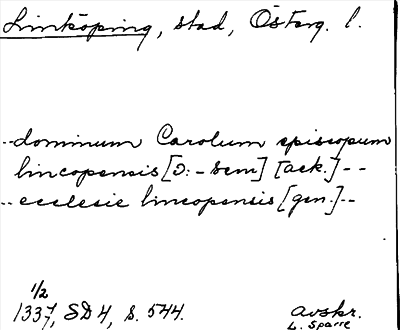 Linköping, stad, Österg. l.
--dominum Carolum episcopum
lincopensis [ɔ: -sem] [ack.] --
-- ecclesie lincopensis [gen.]--
1/2
1337, SD 4, s. 544.
Avskr.
L. Sparre